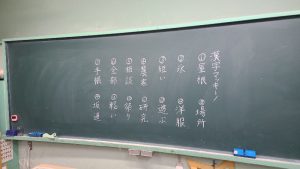 漢字マッキー!
①屋根
②氷
③短い
④農家
⑤相談
⑥全部
⑦手帳
⑧場所
⑨洋服
⑩遊ぶ
⑪研究
⑫祭り
⑬軽い
⑭坂道